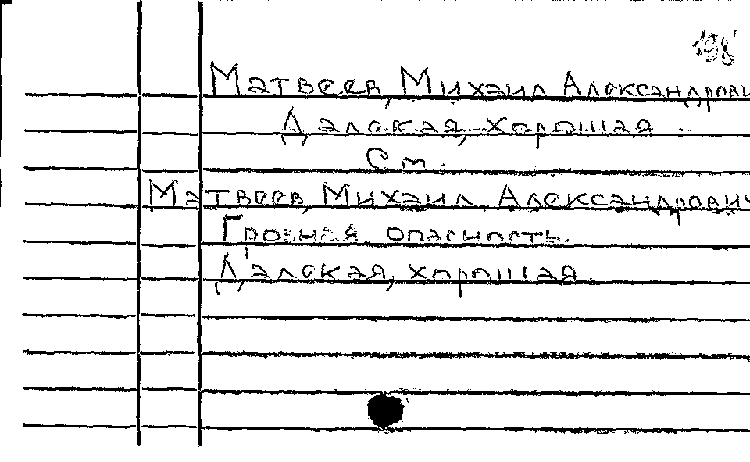 198
Матвеев, Михаил Александрови
Далекая, хорошая
См.
Матвеев, Михаил Александрович
Грозная опасность.
Далекая, хорошая.